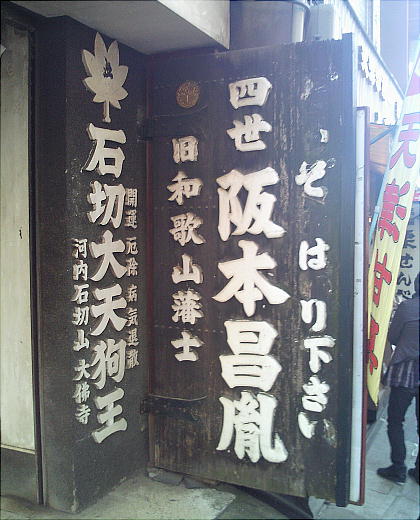 そはり下さい
四世 阪本昌胤
旧和歌山藩士
開運 厄除 病気退散
石切大天狗王
河内石切山 大佛寺